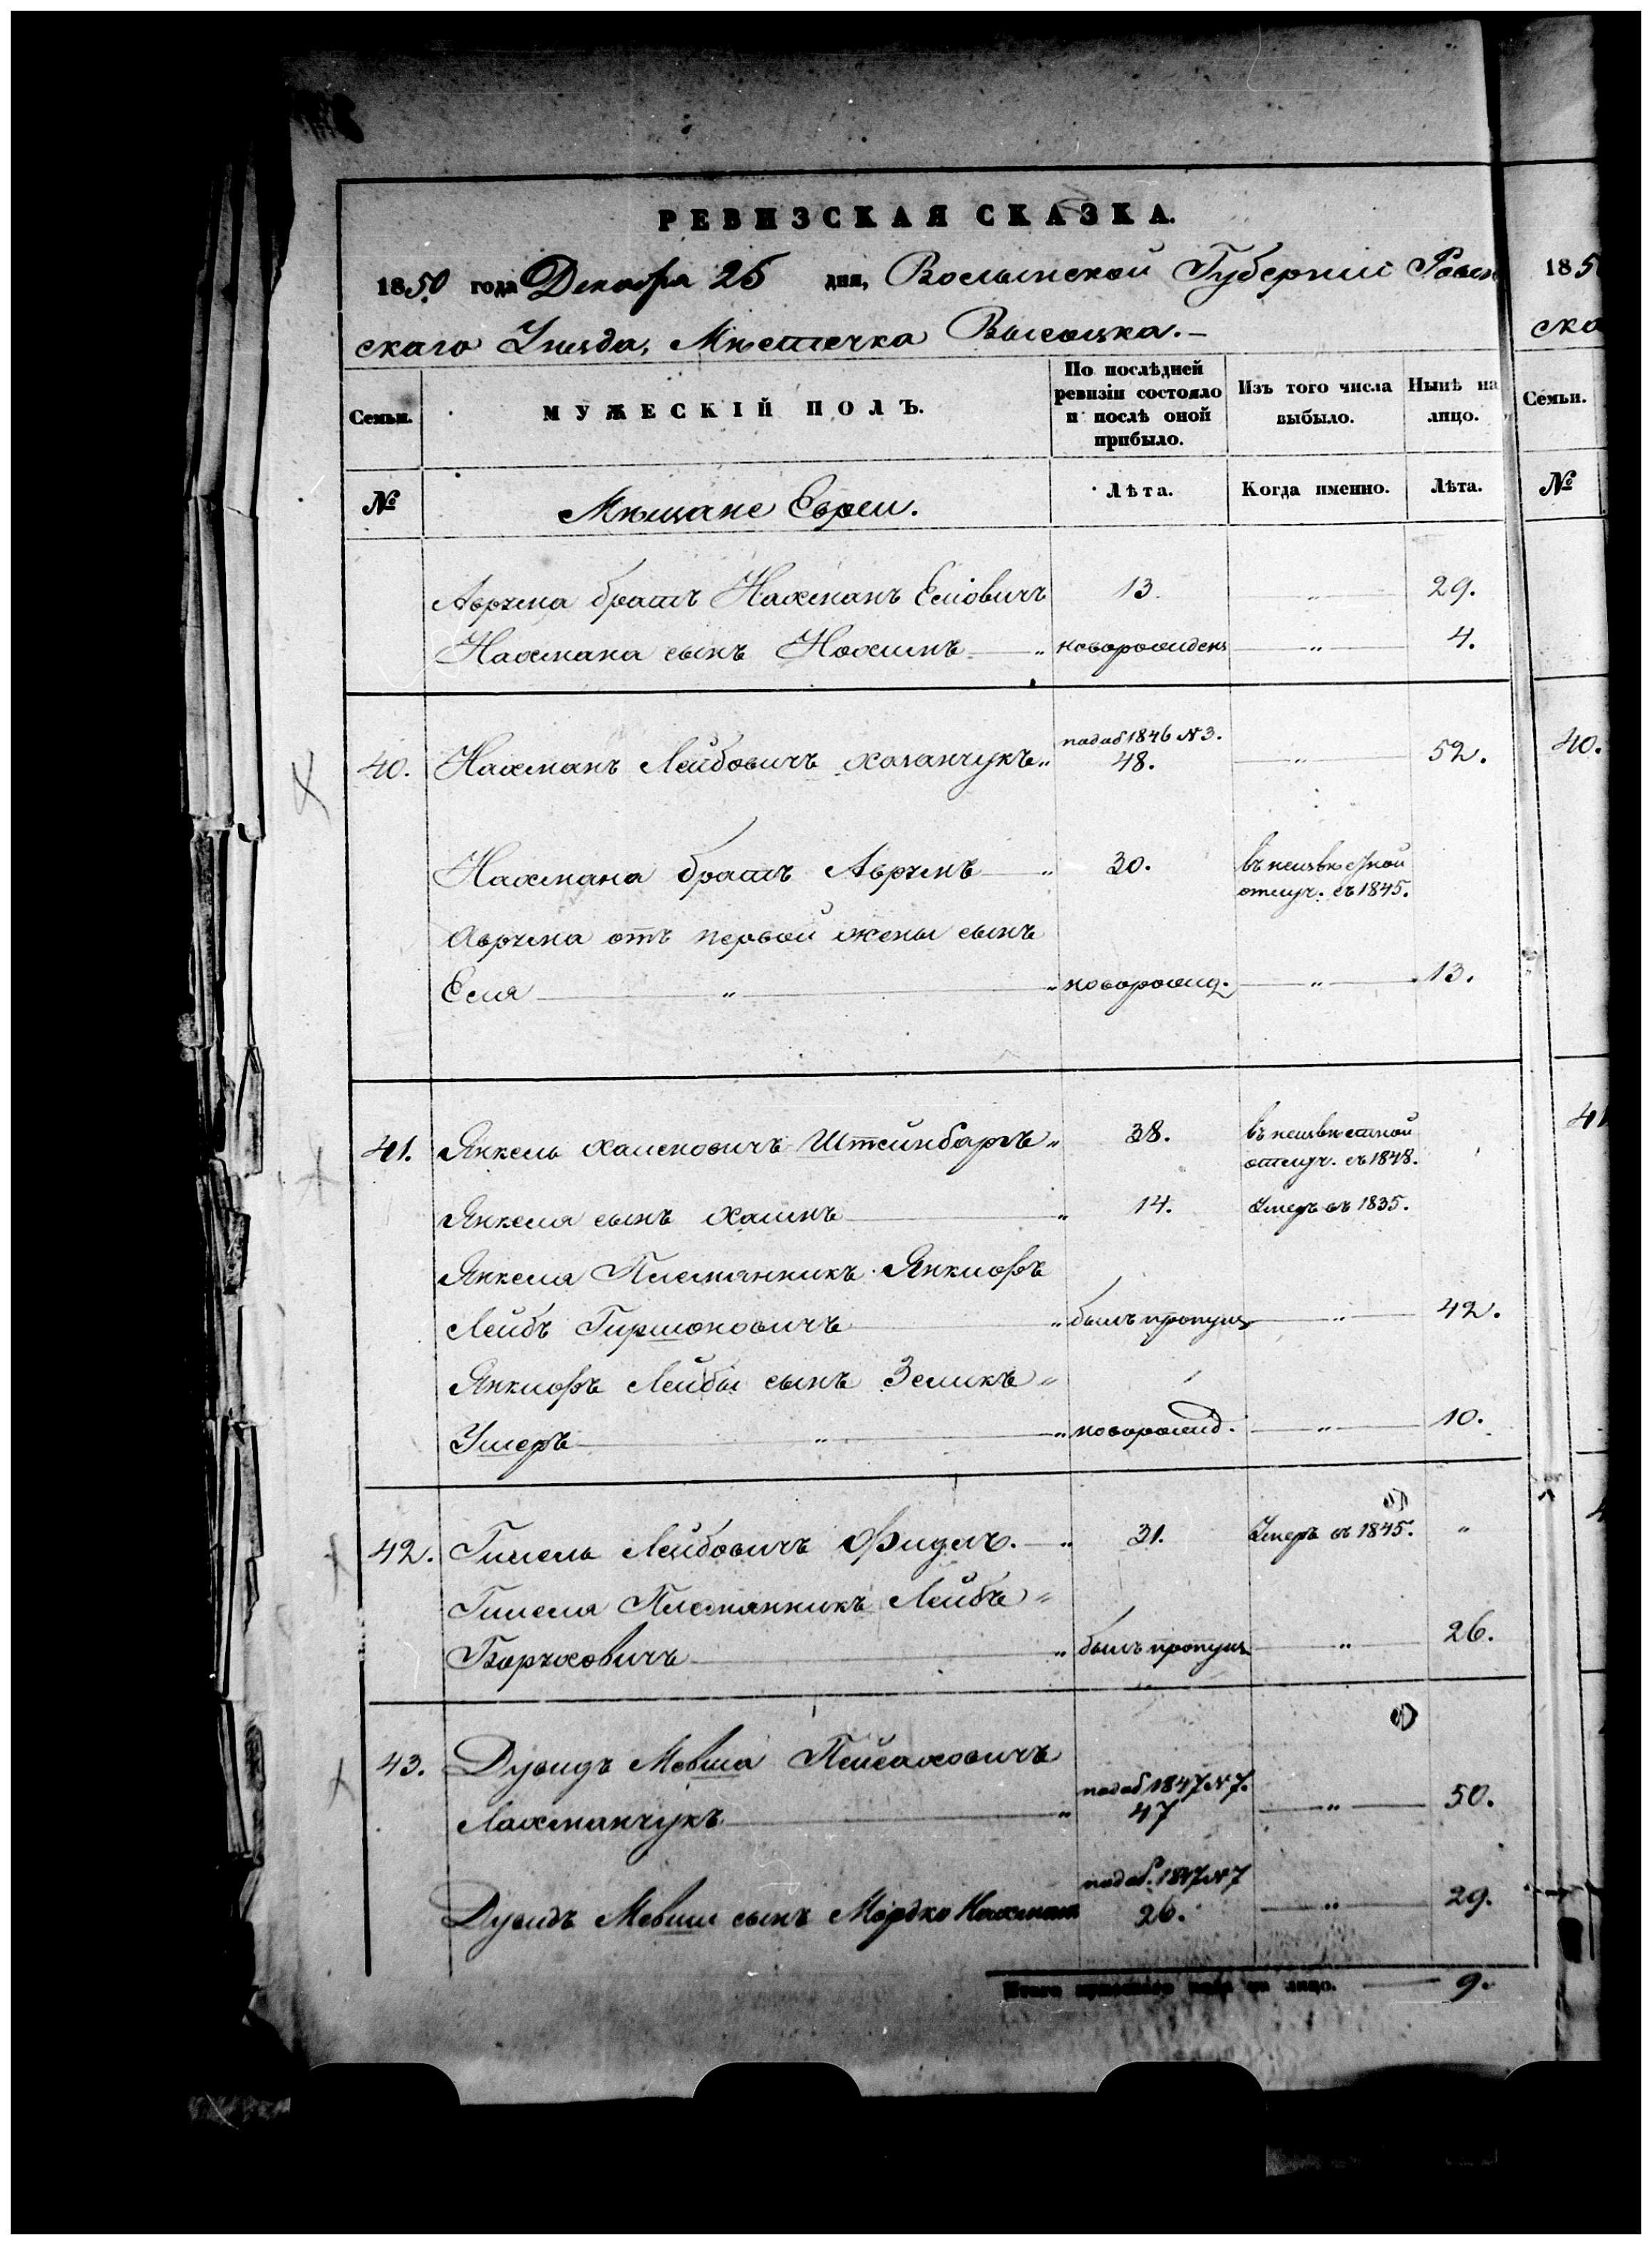 РЕВИЗСКАЯ СКАЗКА.
1850 года Декабря 25 дня, Волынской Губерніи Ровен
скаго Уѣзда, Мѣстечка Высоцка.
Семьи.
МУЖЕСКІЙ ПОЛЪ.
По послѣдней ревизіи состояло и послѣ оной прибыло.
Изъ того числа выбыло.
Нынѣ на лицо.
№
Мѣщане Евреи.
Лѣта.
Когда именно.
Лѣта.
Аврума братъ Нахманъ Еліовичъ 13. " 29.
Нахмана сынъ Нохимъ " новорожденъ " 4.
подаб 1846 №3.
40. Нахманъ Лейбовичъ " 48. " 52.
Нахмана братъ Аврумъ " 30. въ неизвѣстной
отлуч. съ 1845.
Аврума отъ первой жены сынъ
Еля " " новорожд. " 13.
41. Янкель Хаимовичъ Штейнбаргъ " 38. въ неизвѣстной
отлуч. съ 1848.
Янкеля сынъ Хаимъ " 14. Умеръ въ 1835.
Янкеля Племянникъ Янкіоръ
Лейбъ Гиршоновичъ " былъ пропущ " 42.
Янкіоръ Лейбы сынъ Зеликъ "
Ушеръ " " новорожд. " 10.
42. Гимель Лейбовичъ Фидлъ. " 31. Умеръ въ 1845. "
Гимеля Племянникъ Лейбъ "
Боруховичъ " былъ пропущ " 26.
43. Дувидъ Мовша Пейсаховичъ
подаб 1847 №7.
Лахманчукъ " 47 " 50.
подаб. 1847 №7
Дувидъ Мовши сынъ Мордко Нахман 26. " 29.
Итого мужескаго пола на лицо. 9.
185
ско
Семьи.
№
40.
41
4